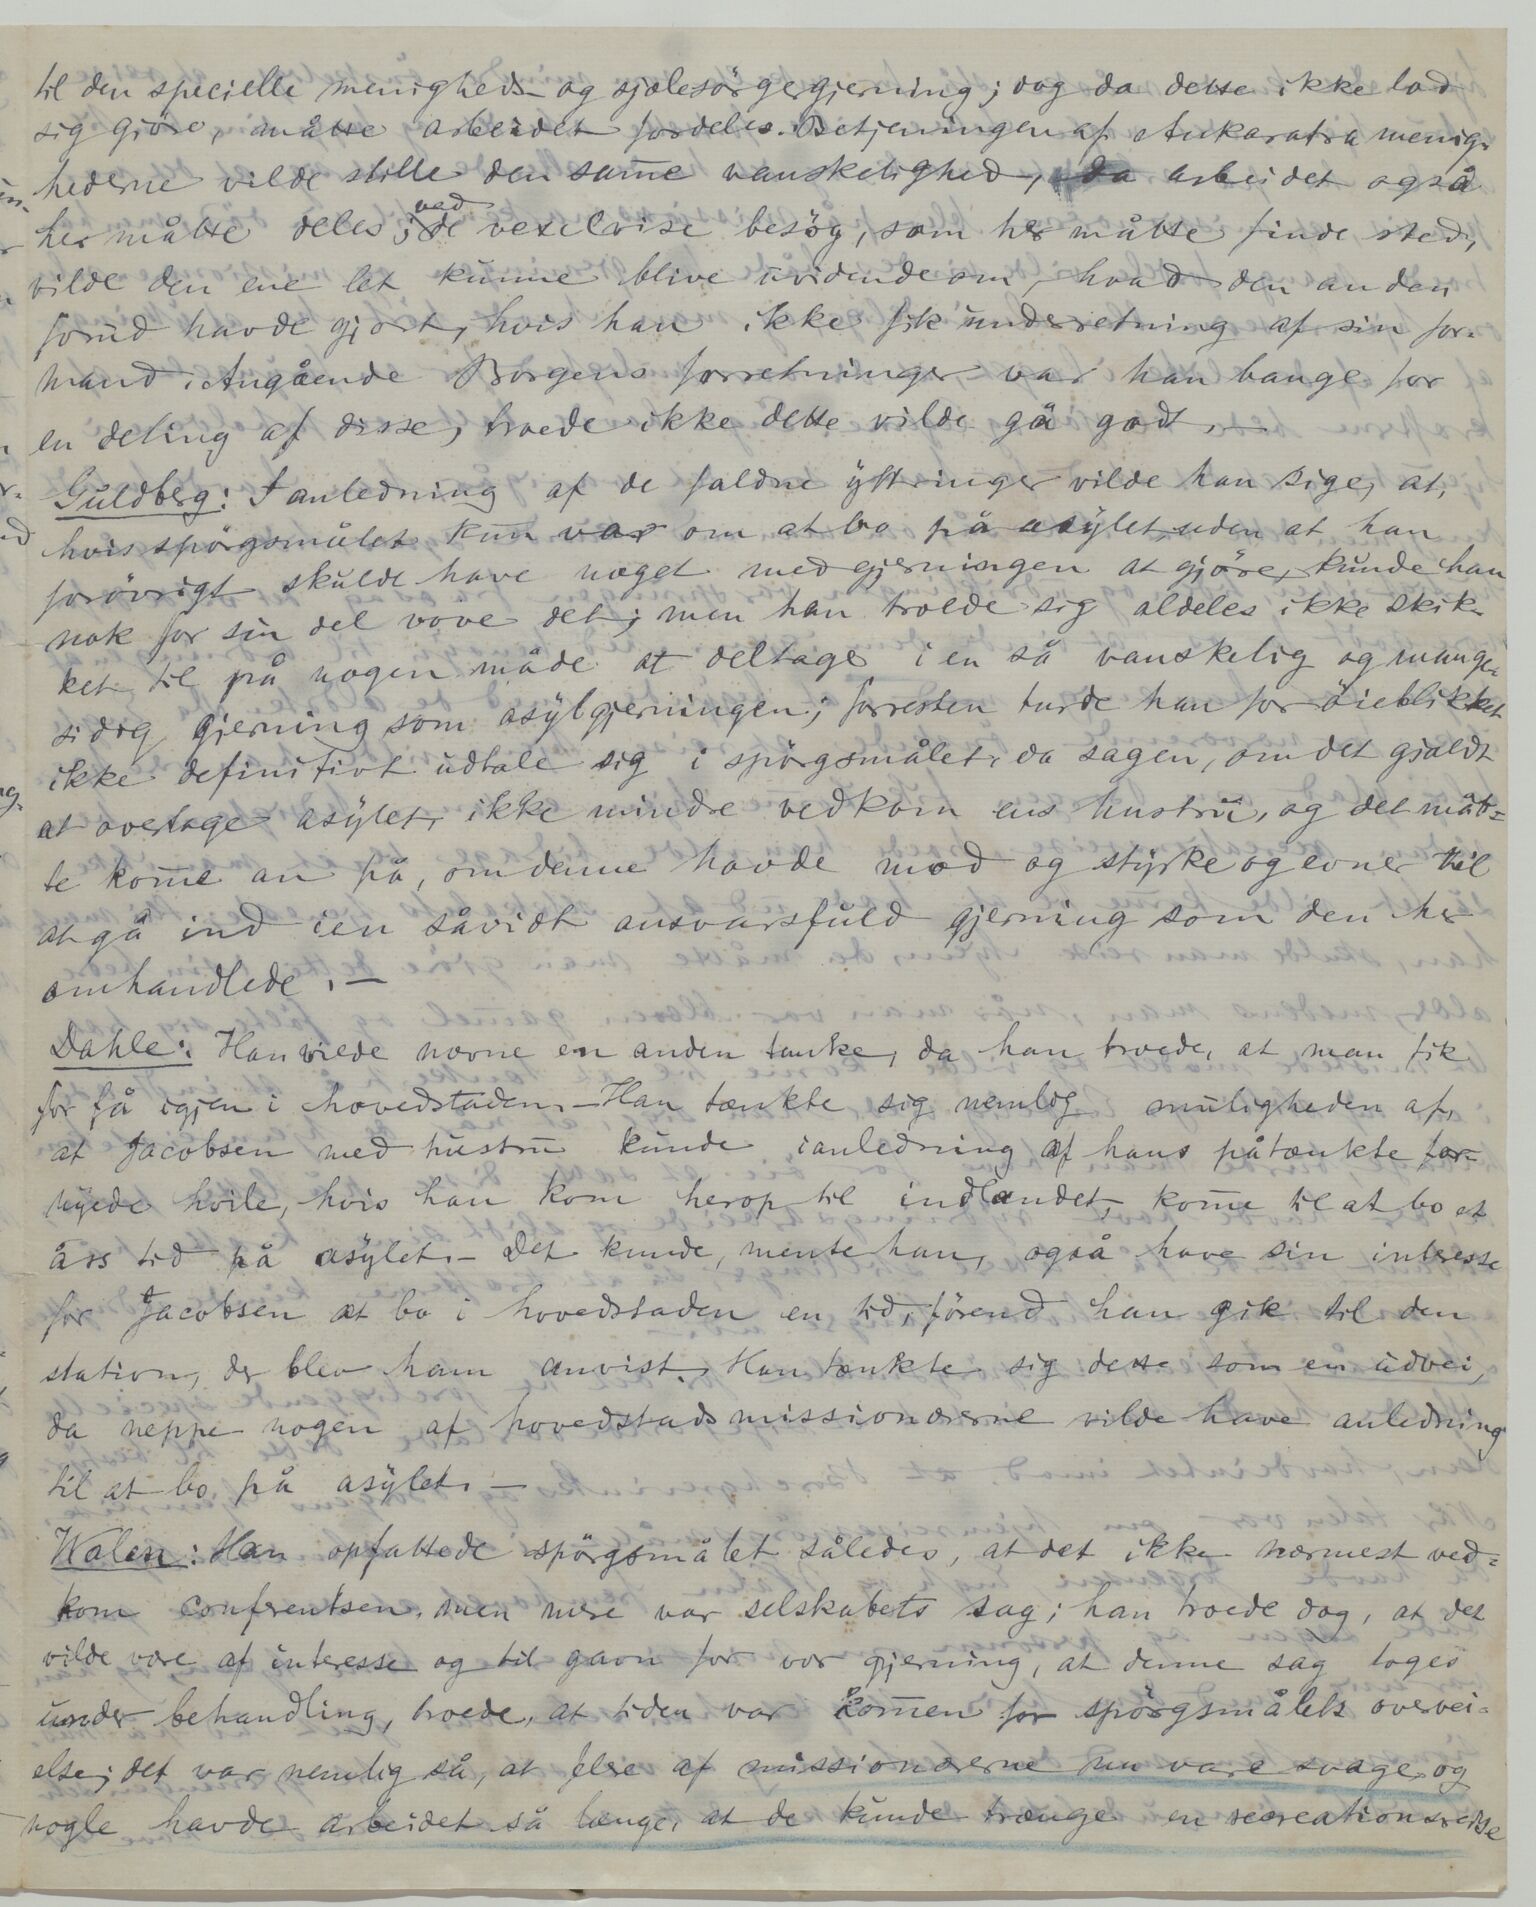 til den specielle menigheds- og sjælesörgergjerning; dog da dette ikke lod
sig gjöre, måtte arbeidet fordeles. Betjeningen af Ankaratra menig-
hederne vilde stille den sam̅e vanskelighed, da arbeidet også
her måtte deles; ved de vexelvise besög, som her måtte finde sted,
vilde den ene let kunne blive uvidende om, hvad den anden
forud havde gjort, hvis han ikke fik underretning af sin for-
mand. Angående Borgens forretninger var han bange for
en deling af disse, troede ikke dette vilde gå godt. —
Guldberg: I anledning af de faldne yttringer vilde han sige, at,
hvis spörgsmålet kun var om at bo på asylet, uden at han
forövrigt skulde have noget med gjerningen at gjöre, kunde han
nok for sin del vove det; men han troede sig aldeles ikke skik-
ket til på nogen måde at deltage i en så vanskelig og mange-
sidig gjerning som asylgjerningen; forresten turde han for öieblikket
ikke definitivt udtale sig i spörgsmålet, da sagen, om det gjaldt
at overtage asylet, ikke mindre vedkom ens hustru, og det måt-
te kom̅e an på, om denne havde mod og styrke og evner til
at gå ind i en såvidt ansvarsfuld gjerning som den her
omhandlede. —
Dahle: Han vilde nævne en anden tanke, da han troede, at man fik
for få igjen i hovedstaden. — Han tænkte sig nemlig muligheden af,
at Jacobsen med hustru kunde i anledning af hans påtænkte for-
nyede hvile, hvis han kom herop til indlandet, kom̅e til at bo et
års tid på asylet. — Det kunde, mente han, også have sin interesse
for Jacobsen at bo i hovedstaden en tid, förend han gik til den
station, der blev ham anvist. Han tænkte sig dette som en udvei,
da neppe nogen af hovedstadsmissionærerne vilde have anledning
til at bo på asylet. —
Walen: Han opfattede spörgsmålet således, at det ikke nærmest ved-
kom conferentsen, men mere var selskabets sag; han troede dog, at det
vilde være af interesse og til gavn for vor gjerning, at denne sag toges
under behandling, troede, at tiden var kom̅en for spörgsmålets overvei-
else; det var nemlig så, at flere af missionærerne nu vare svage, og
nogle havde arbeidet så længe, at de kunde trænge en recreationsreise